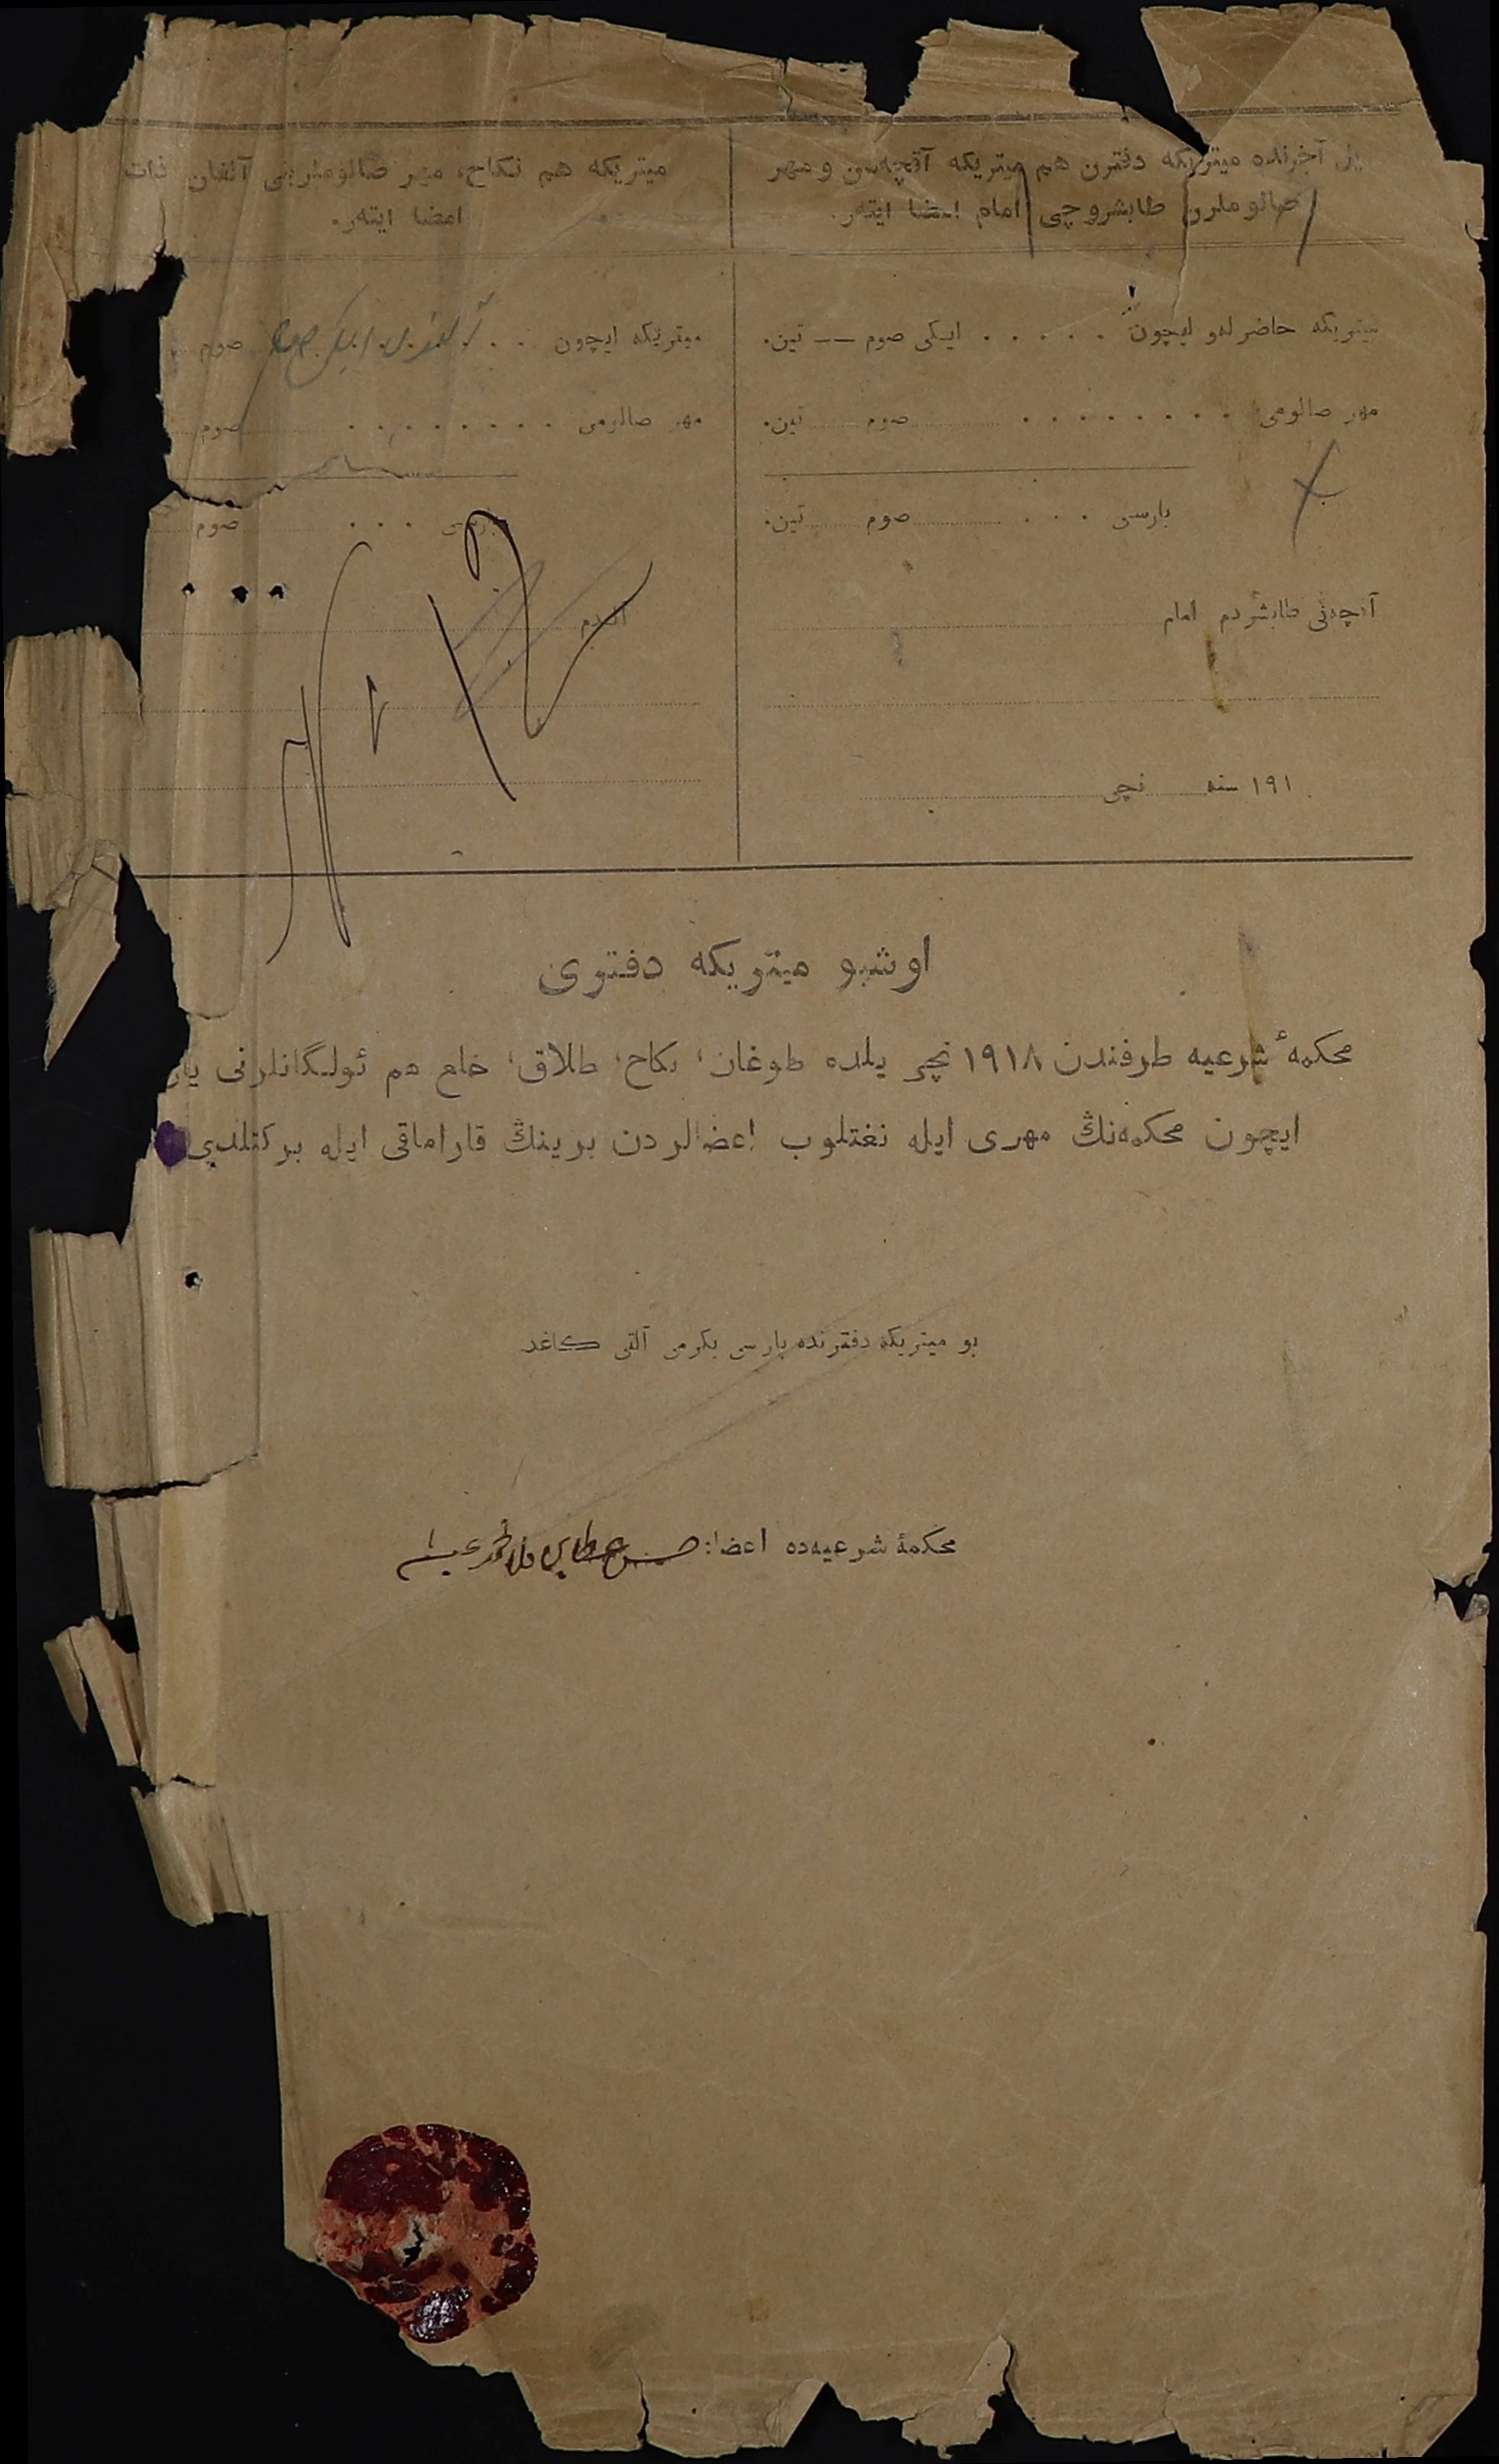 یل آخرنده میتریکه دفترن هم میتریکه آقچه‌سن و مهر
صالوملرن طابشروچی امام امضا ایته‌ر.
میتریکه حاضرلەو ایچون . . . . . ایکی صوم —— تین.
مهر صالومی . . . . . . . . صوم تین.
بارسی . . . صوم تین.
آقچه‌نی طابشردم امام
۱۹۱ سنه نچی
میتریکه هم نکاح، مهر صالوملرینی آلغان ذات
امضا ایته‌ر.
میتریکه ایچون . . صوم
مهر صالومی . . . . . . . . صوم
بارسی . . . صوم
آلدم
اوشبو میتریکه دفتری
محکمهٔ شرعیه طرفندن ۱۹۱۸ نچی یلده طوغان، نکاح، طلاق، خلع هم ئولگانلرنی
ایچون محکمه‌نڭ مهری ایله نغتلوب اعضالردن برینڭ قاراماقی ایله برکتلدی
بو میتریکه دفترنده بارسی یکرمی آلتی کاغد
محکمهٔ شرعیه‌ده اعضا: